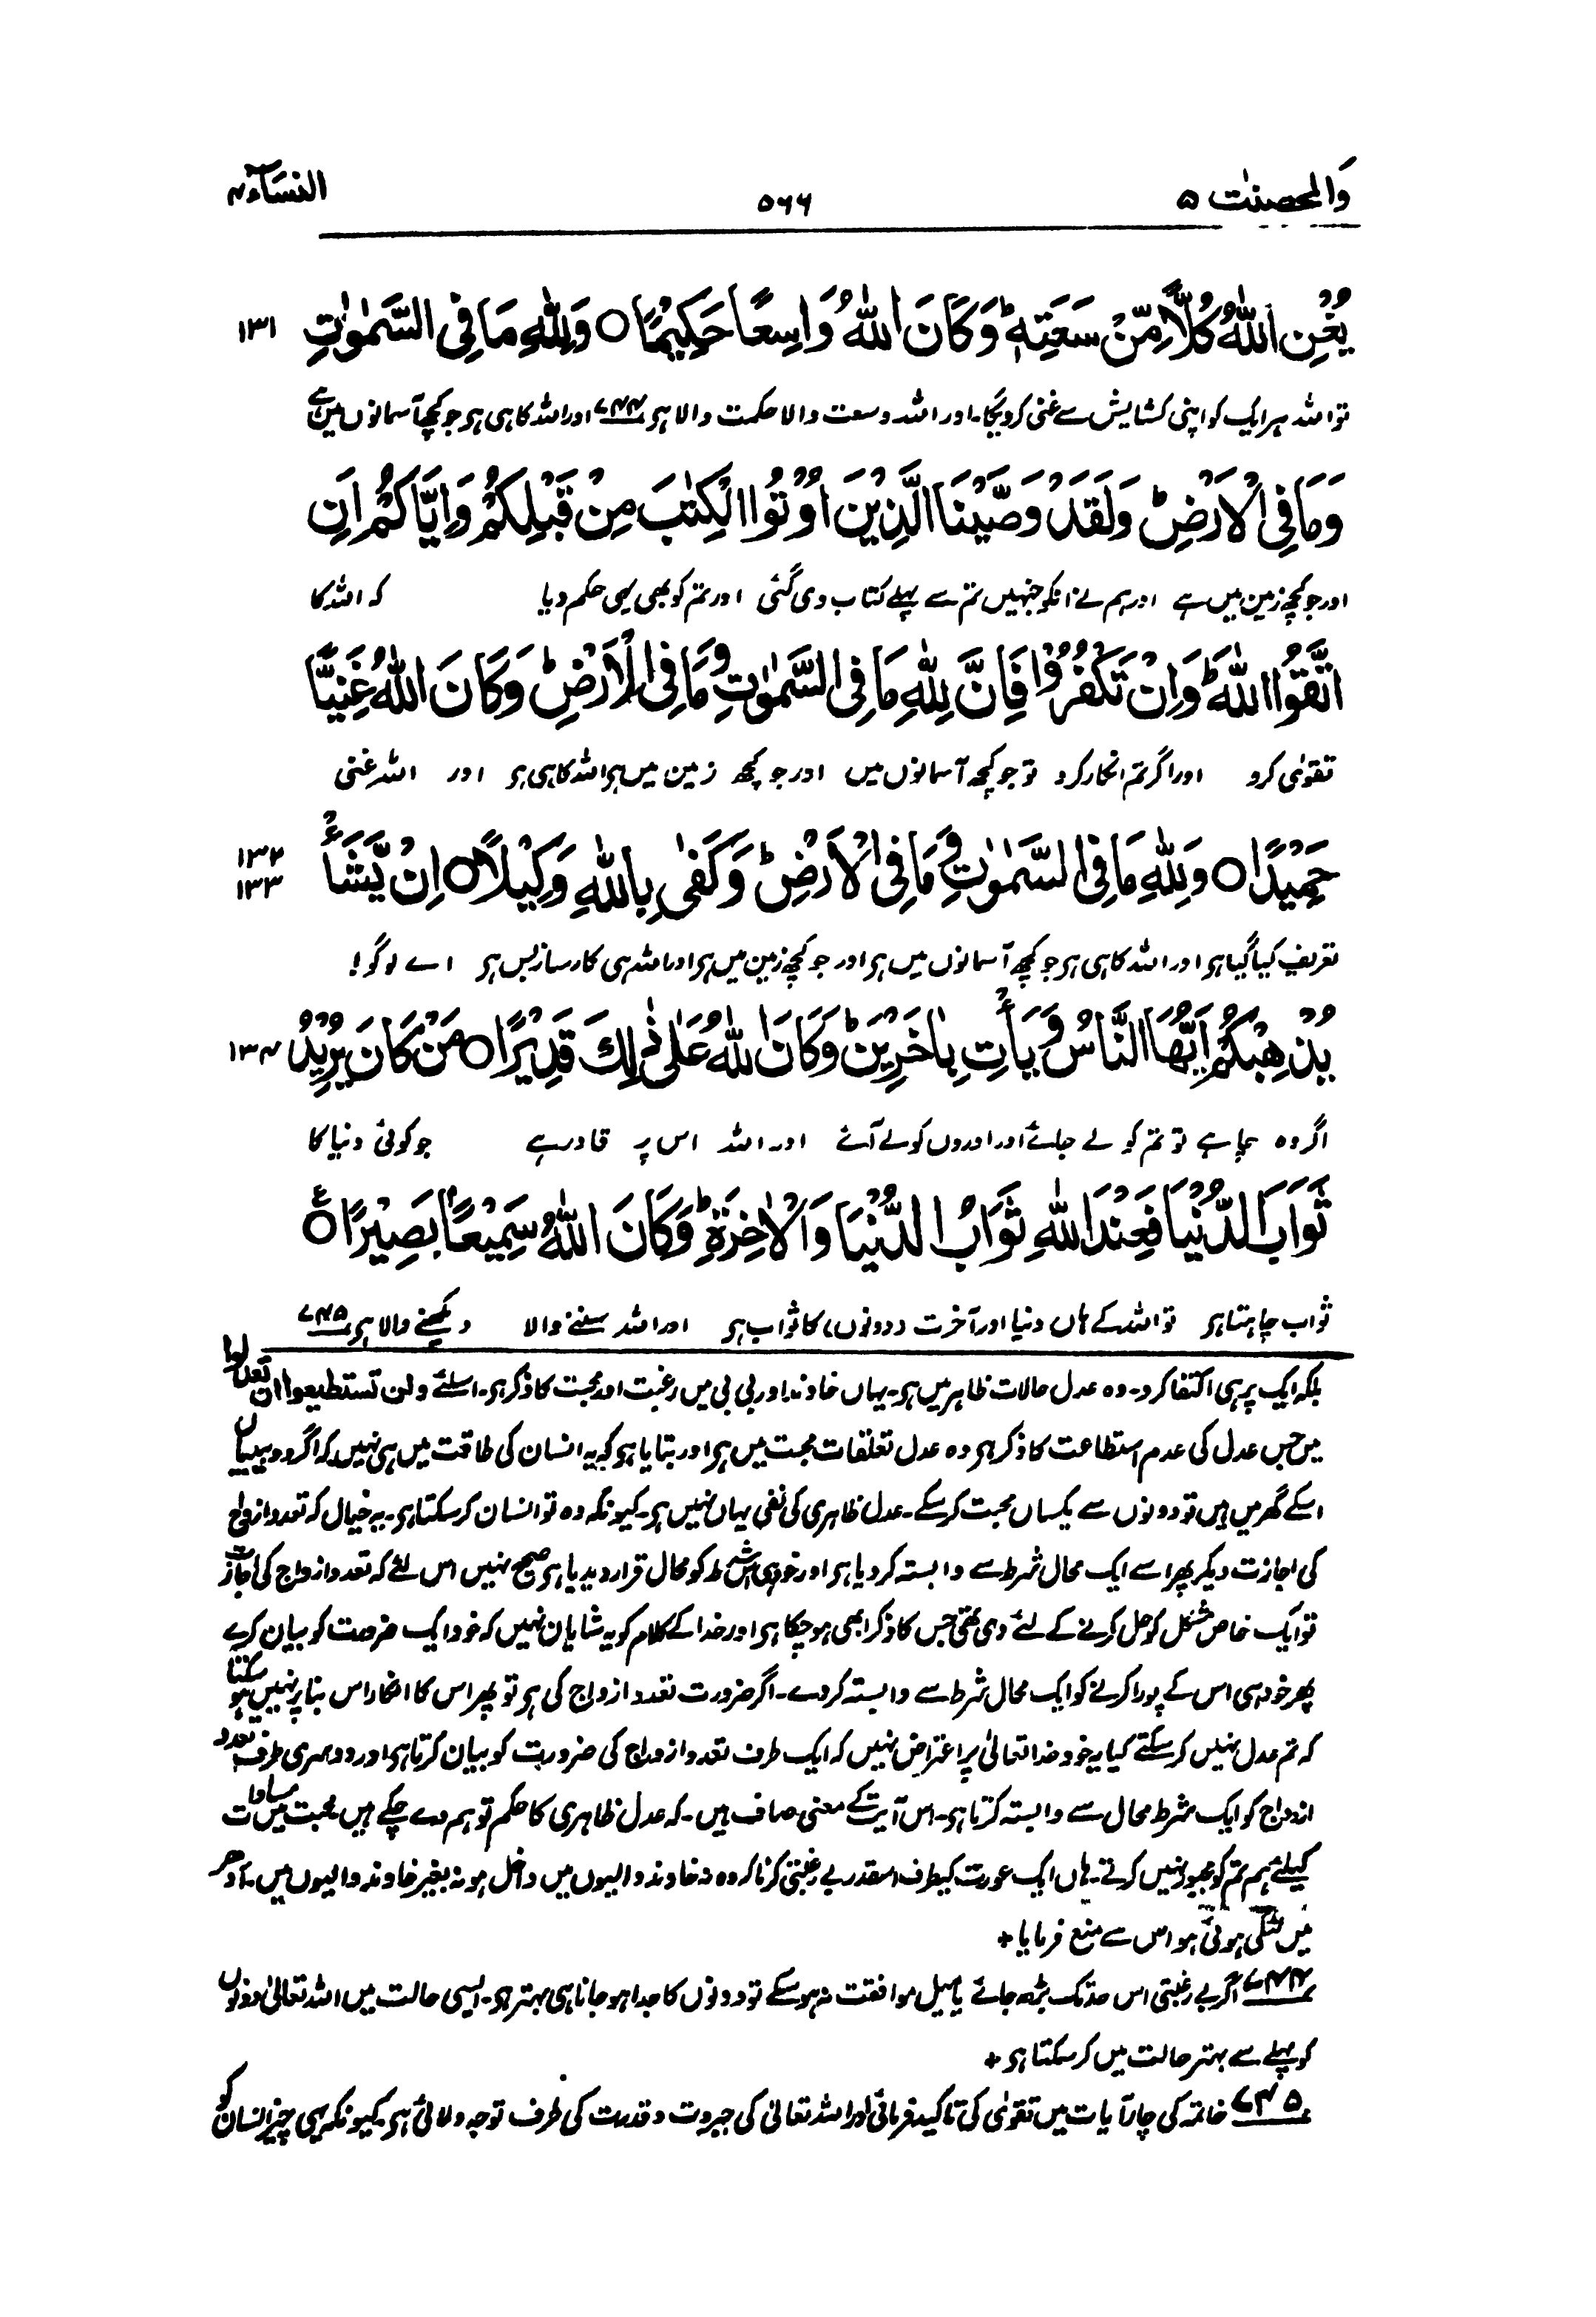 وَالمحصنٰت ۵ ۵۶۶ النسَآء ۴
يُغْنِ اللّٰهُ كُلًّا مِّنْ سَعَتِهٖ ؕ وَكَانَ اللّٰهُ وَاسِعًا حَكِيْمًا ○ وَلِلّٰهِ مَا فِى السَّمٰوٰتِ ۱۳۱
تو اللہ ہر ایک کو اپنی کشایش سے غنی کردیگا۔ اور اللہ وسعت والا حکمت والا ہر ۷۴۴ اور اللہ کا ہی ہر جو کچھ آسمانوں میں ہے
وَمَا فِى الْاَرْضِ ؕ وَلَقَدْ وَصَّيْنَا الَّذِيْنَ اُوْتُوا الْكِتٰبَ مِنْ قَبْلِكُمْ وَاِيَّاكُمْ اَنِ
اور جو کچھ زمین میں ہے اور ہم نے انکو جنہیں تم سے پہلے کتاب دی گئی اور تم کو بھی یہی حکم دیا کہ اللہ کا
اتَّقُوا اللّٰهَ ؕ وَاِنْ تَكْفُرُوْا فَاِنَّ لِلّٰهِ مَا فِى السَّمٰوٰتِ وَمَا فِى الْاَرْضِ ؕ وَكَانَ اللّٰهُ غَنِيًّا
تقوٰی کرو اور اگر تم انکار کرو تو جو کچھ آسمانوں میں اور جو کچھ زمین میں ہر اللہ کا ہی ہر اور اللہ غنی
حَمِيْدًا ○ وَلِلّٰهِ مَا فِى السَّمٰوٰتِ وَمَا فِى الْاَرْضِ ؕ وَكَفٰى بِاللّٰهِ وَكِيْلًا ○ اِنْ يَّشَاْ ۱۳۲ ۱۳۳
تعریف کیا گیا ہر اور اللہ کا ہی ہر جو کچھ آسمانوں میں ہر اور جو کچھ زمین میں ہر اور اللہ ہی کارساز بس ہر اے لوگو!
يُذْهِبْكُمْ اَيُّهَا النَّاسُ وَيَاْتِ بِاٰخَرِيْنَ ؕ وَكَانَ اللّٰهُ عَلٰى ذٰلِكَ قَدِيْرًا ○ مَنْ كَانَ يُرِيْدُ ۱۳۴
اگر وہ چاہے تو تم کو لے جائے اور اوروں کو لے آئے اور اللہ اس پر قادر ہے جو کوئی دنیا کا
ثَوَابَ الدُّنْيَا فَعِنْدَ اللّٰهِ ثَوَابُ الدُّنْيَا وَالْاٰخِرَةِ ؕ وَكَانَ اللّٰهُ سَمِيْعًا بَصِيْرًا ○ ع
ثواب چاہتا ہر تو اللہ کے ہاں دنیا اور آخرت (دونوں) کا ثواب ہر اور اللہ سننے والا دیکھنے والا ہر ۷۴۵
بلکہ ایک پر ہی اکتفا کرو۔ وہ عدل حالات ظاہر میں ہر۔ یہاں خاوند اور بی بی میں رغبت اور محبت کا ذکر ہر۔ اسلئے ولن تستطیعوا ان تعدلوا
میں جس عدل کی عدم استطاعت کا ذکر ہر وہ عدل تعلقات محبت میں ہر اور بتایا ہو کہ یہ انسان کی طاقت میں ہی نہیں کہ اگر دو بیبیاں
اسکے گھر میں ہیں تو دونوں سے یکساں محبت کر سکے۔ عدل ظاہری کی نفی یہاں نہیں ہر۔ کیونکہ وہ تو انسان کر سکتا ہر۔ یہ خیال کہ تعدد ازواج
کی اجازت دیکر پھر اسے ایک محال شرط سے وابستہ کردیا ہر اور خود ہی اس شرط کو محال قرار دیدیا ہر صحیح نہیں اس لئے کہ تعدد ازواج کی اجازت
تو ایک خاص مشکل کو حل کرنے کے لئے دی تھی جس کا ذکر ابھی ہو چکا ہر اور خدا کے کلام کو یہ شایان نہیں کہ خود ایک ضرورت کو بیان کرے
پھر خود ہی اس کے پورا کرنے کو ایک محال شرط سے وابستہ کردے۔ اگر ضرورت تعدد ازواج کی ہر تو پھر اس کا انکار اس بنا پر نہیں ہو سکتا
کہ تم عدل نہیں کر سکتے کیا یہ خود خدا تعالیٰ پر اعتراض نہیں کہ ایک طرف تعدد ازواج کی ضرورت کو بیان کرتا ہر اور دوسری طرف تعدد
ازدواج کو ایک شرط محال سے وابستہ کرتا ہر۔ اس آیت کے معنی صاف ہیں۔ کہ عدل ظاہری کا حکم تو ہم دے چکے ہیں محبت میں مساوات
کیلئے ہم تم کو مجبور نہیں کرتے۔ ہاں ایک عورت کیطرف اسقدر بے رغبتی کرنا کہ وہ نہ خاوند والیوں میں داخل ہو نہ بغیر خاوند والیوں میں۔ ادھر
میں لٹکی ہوئی ہو اس سے منع فرمایا +
۷۴۴ اگر بے رغبتی اس حد تک بڑھ جائے یا میل موافقت نہ ہو سکے تو دونوں کا جدا ہو جانا ہی بہتر ہر۔ ایسی حالت میں اللہ تعالیٰ دونوں
کو پہلے سے بہتر حالت میں کر سکتا ہر +
۷۴۵ خاتمہ کی چار آیات میں تقوٰی کی تاکید فرمائی اور اللہ تعالیٰ کی جبروت و قدرت کی طرف توجہ دلائی ہر۔ کیونکہ یہی چیز انسان کو